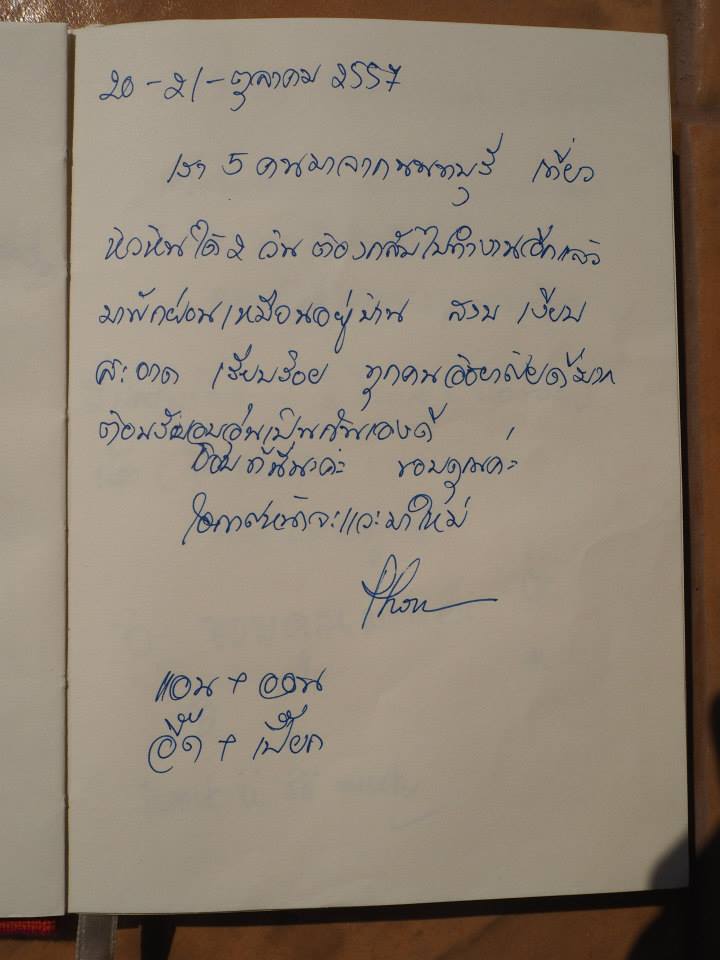 20 - 21 - ตุลาคม 2557
เรา 5 คนมาจากนนทบุรี เที่ยว
หัวหินได้ 2 วัน ต้องกลับไปทำงานอีกแล้ว
มาพักผ่อนเหมือนอยู่บ้าน สงบ เงียบ
สะอาด เรียบร้อย ทุกคนอัธยาศัยดีมาก
ต้อนรับอบอุ่นเป็นกันเองดี
ชอบที่นี่นะคะ ขอบคุณค่ะ
โอกาสหน้าจะแวะมาใหม่
แอน + ออน
อี๊ด + เปี๊ยก